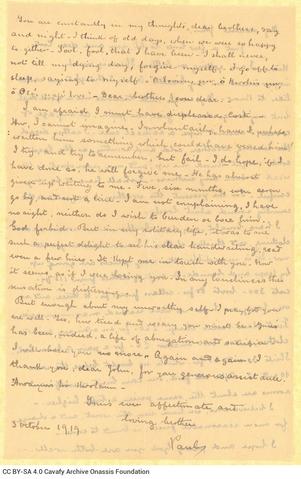 You are constantly in my thoughts, dear brother, day
and night - I think of old days, when we were so happy
together. Fool, fool, that I have been - I shall never,
not till my dying day, forgive myself. I go off to
sleep, saying to myself
- Dear brother,
I am afraid, I must have displeased
How, I cannot imagine, Involuntarily, have I, perhaps
written him something which could have vexed him?
I try, and try to remember, but fail - I do hope, if I
have done so, he will forgive me - He has almost
given up writing to me - Five, six months, even
go by and not a line. I am not complaining, I have
no right, neither do I wish to burden or bore him,
God forbid. But in my solitary life, it was to me
such a perfect delight to see his clear handwriting, read
even a few lines. It kept me in touch with you. Now
it seems, as if I were losing you. In my loneliness this
sensation is distressing.
But enough about my unworthy self. I pray, both your
are well. You, how tired and weary you must be. Yours
has been, indeed, a life of abnegation and sacrifice
no more. Again and again, I
thank you, dear John, for your generous assistance.
Thine ever affectionate, and
loving brother
3 October 1919. Paul